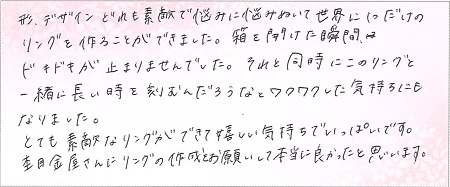 形、デザインどれも素敵で悩みに悩みぬいて世界に1つだけの
リングを作ることができました。箱を開けた瞬間は
ドキドキが止まりませんでした。それと同時にこのリングと
一緒に長い時を刻むんだろうなとワクワクした気持ちにも
なりました。
とても素敵なリングができて嬉しい気持ちでいっぱいです。
杢目金屋さんにリングの作成をお願いして本当に良かったと思います。